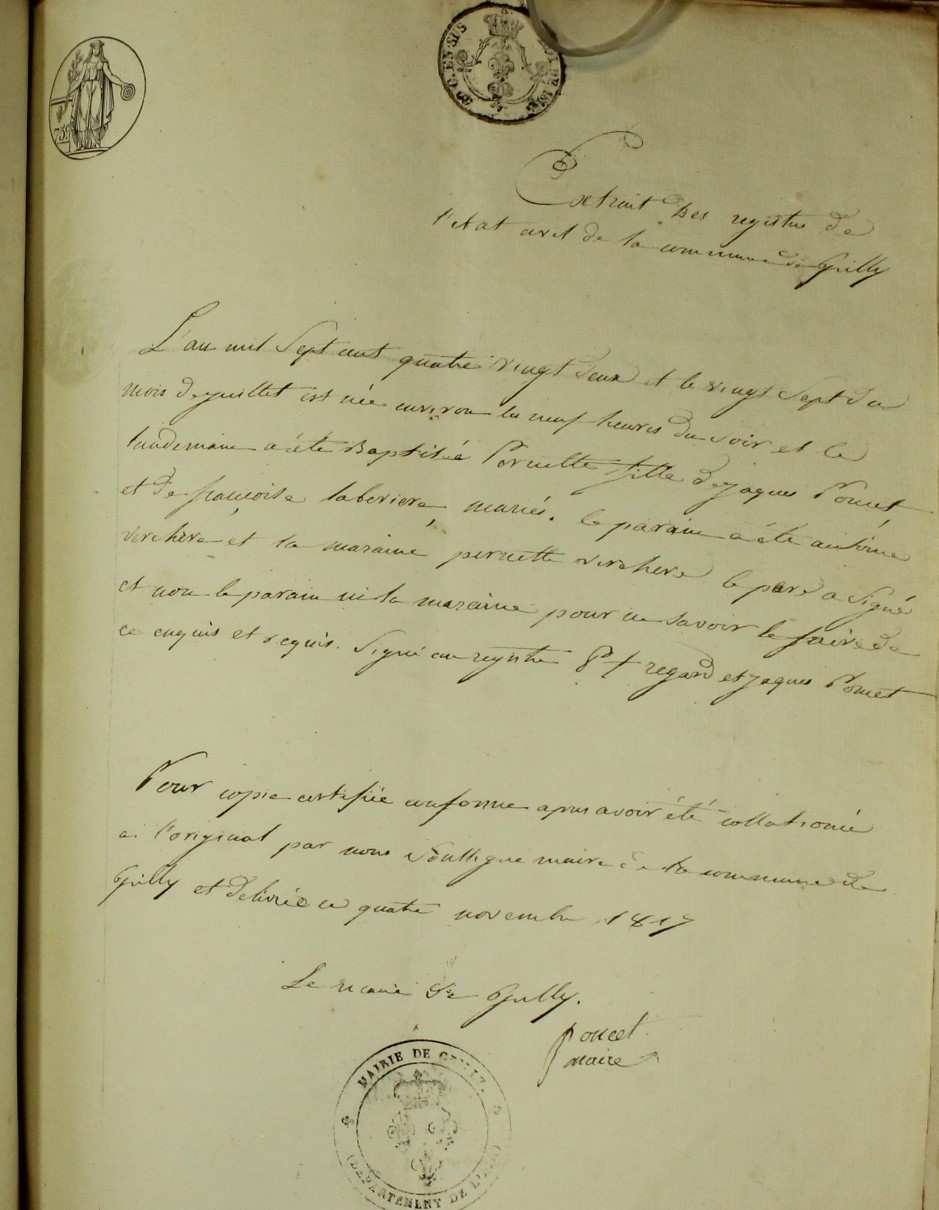 EN SUS
Extrait Des registres de
l'etat civil de la commune de Grilly
L'an mil Sept cent quatre vingt deux et le vingt Sept du
mois de juillet est née environ les neuf heures du soir et le
landemain a été Baptisée Pernette fille de jaques Poncet
et de françoise mariés. le parain a été antoine
verchere et la maraine pernette verchere le pere a Signé
et non le parain ni la maraine pour ne savoir le faire de
ce enquis et requis. Signé au registre regard et jaques Poncet
Pour copie certifiée conforme apres avoir été collationné
a l'original par nous Soussigné maire de la commune de
Grilly et delivrée ce quatre novembre 1817
Le maire de Grilly.
Poncet
maire
MAIRIE DE GRILLY
(DÉPARTEMENT DE L'AIN)